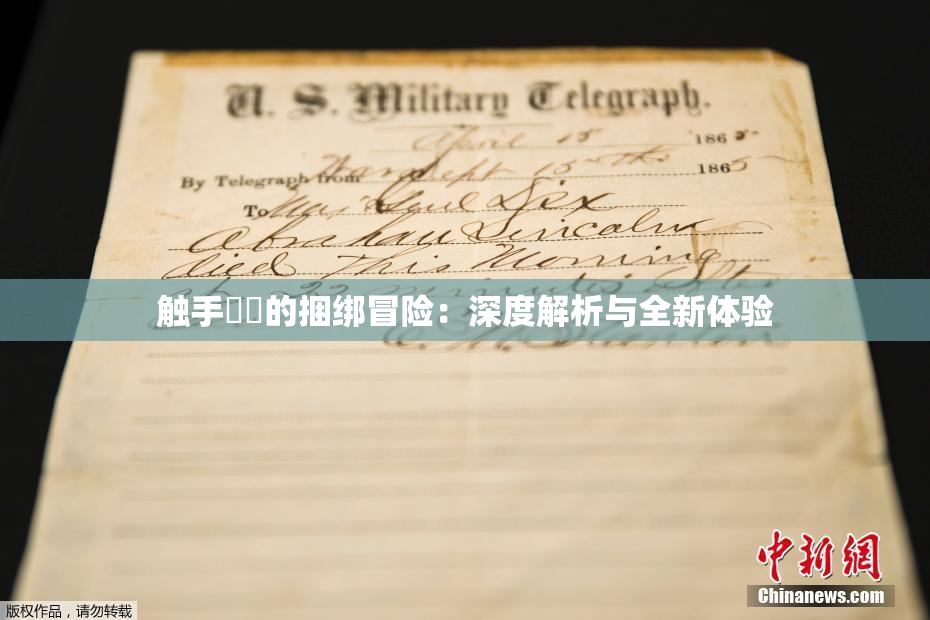 U. S. Military Telegraph.
April 15 1865.
By Telegraph from War Dept 15th 1865
To Maj Genl Dix
Abraham Lincoln
died This Morning
at 22 minutes after
E. M. Stanton
触手的捆绑冒险：深度解析与全新体验
中新网
Chinanews.com
版权作品，请勿转载